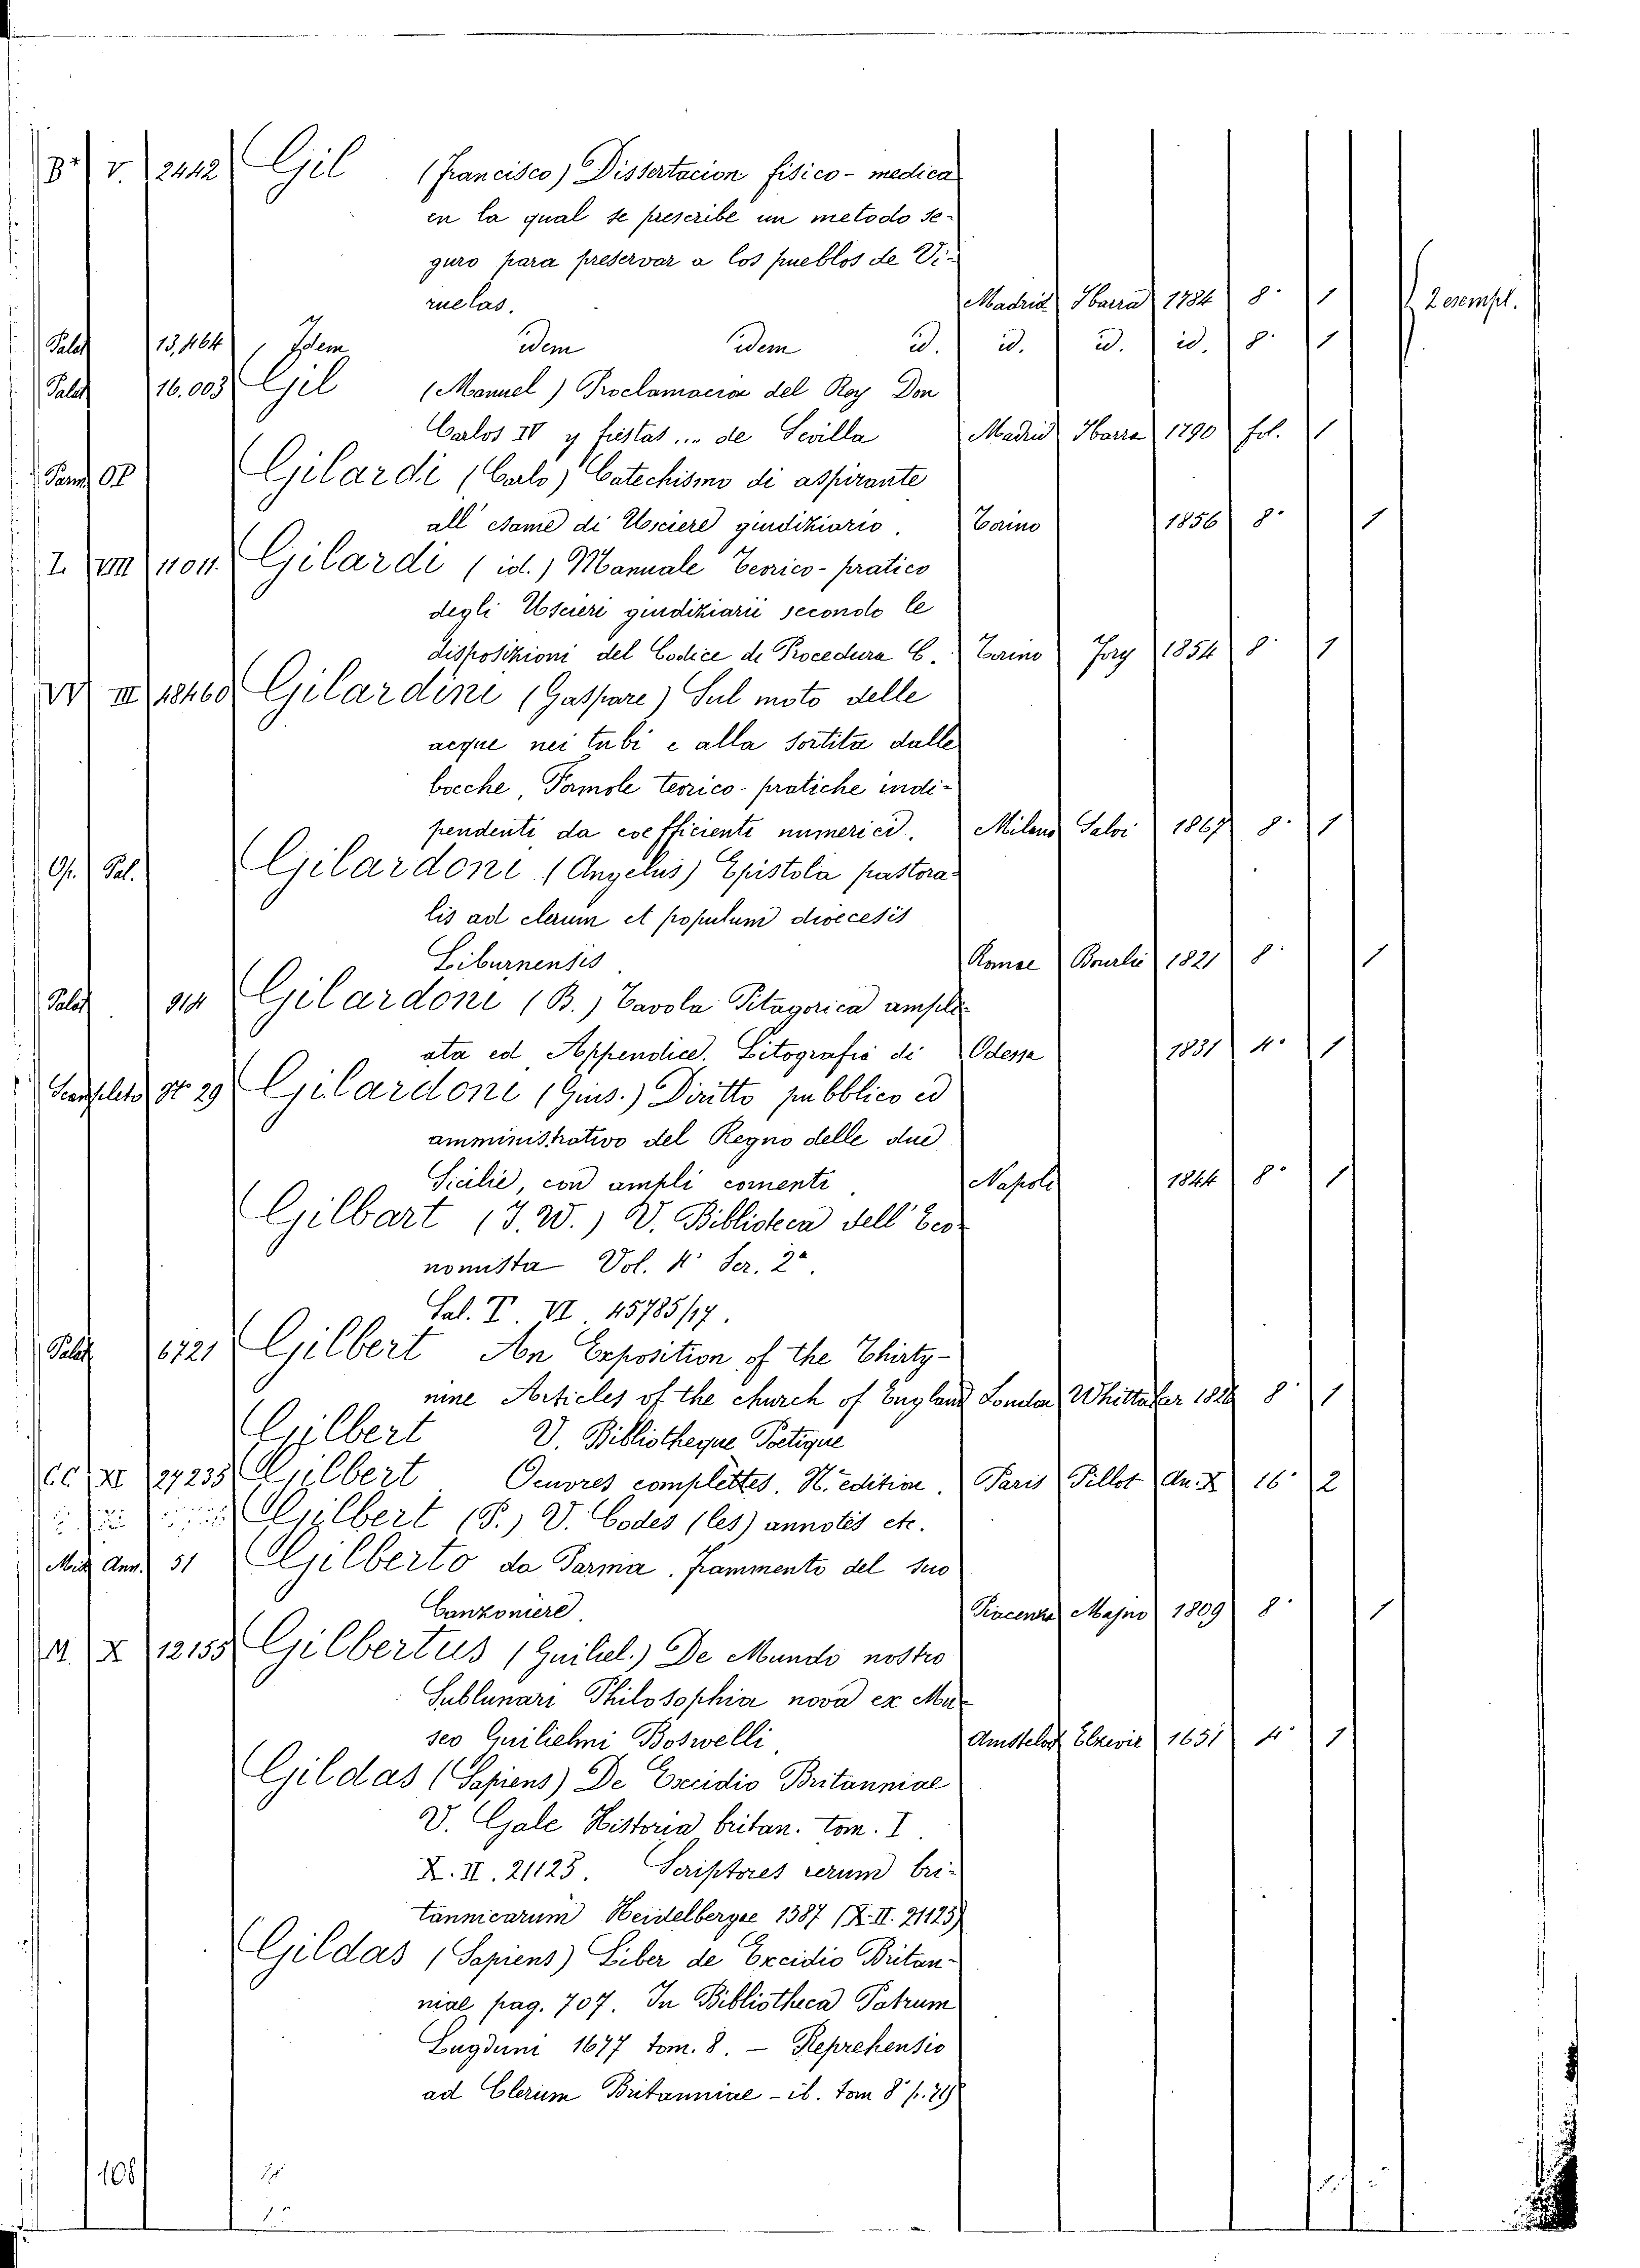 B* V. 2442 Gil (Francisco) Dissertacion fisico-medica
en la qual se prescribe un metodo se-
guro para preservar a los pueblos de Vi-
ruelas. Madrid Ibarra 1784 8. 1 2 esempl.
Palat 13,464 Idem idem idem id. id. id. id. 8. 1
Palat 16.003 Gil (Manuel) Proclamacion del Rey Don
Carlos IV y fiestas ... de Sevilla Madrid Ibarra 1790 fol. 1
Parm Gilardi (Carlo) Catechismo di aspirante
all' esame di Usciere giudiziario. Torino 1856 8° 1
I. VIII 11011. Gilardi (id.) Manuale Teorico-pratico
degli Uscieri giudiziarii secondo le
disposizioni del Codice di Procedura C. Torino Fory 1854 8° 1
VV III 18460 Gilardini (Gaspare) Sul moto delle
acque nei tubi e alla sortita dalle
bocche, Formole teorico-pratiche indi-
pendenti da coefficiente numerici. Milano Salvi 1867 8. 1
Op. Pal. Gilardoni (Angelus) Epistola pastora-
lis ad clerum et populum dioecesis
Liburnensis. Romae Bourlié 1821 8° 1
Palat. 914 Gilardoni (B.) Tavola Pitagorica ampli-
ata ed Appendice. Litografia di Odessa 1831 4° 1
N° 29 Gilardoni (Gius.) Diritto pubblico ed
amministrativo del Regno delle due
Sicilie, con ampli comenti. Napoli 1844 8° 1
Gilbart (J. W.) V. Biblioteca dell' Eco-
nomista Vol. 4° Ser. 2ª.
Sal. T. VI. 45785/17.
Palat 6721 Gilbert An Exposition of the Thirty-
nine Articles of the church of England London Whittaker 8° 1
Gilbert V. Bibliotheque Poetique
CC XI 27235 Gilbert Oeuvres complettes. N. edition. Paris Pillot An. X 16° 2
Gilbert (P.) V. Codes (les) annotés etc.
Misc Ann. 51 Gilberto da Parma. Frammento del suo
Canzoniere. Piacenza Majno 1809 8° 1
M. X 12155 Gilbertus (Guiliel.) De Mundo nostro
Sublunari Philosophia nova ex Mu-
seo Guilielmi Boswelli. Amstelod Elzevir 1651 4° 1
Gildas (Sapiens) De Excidio Britanniae
V. Gale Historia britan. tom. I.
X. II. 21123. Scriptores rerum bri-
tannicarum Heidelbergae 1387 (X. II. 21125)
Gildas (Sapiens) Liber de Excidio Britan-
niae pag. 707. In Bibliotheca Patrum
Lugduni 1677 tom. 8. — Reprehensio
ad Clerum Britanniae - ib. tom 8°
108